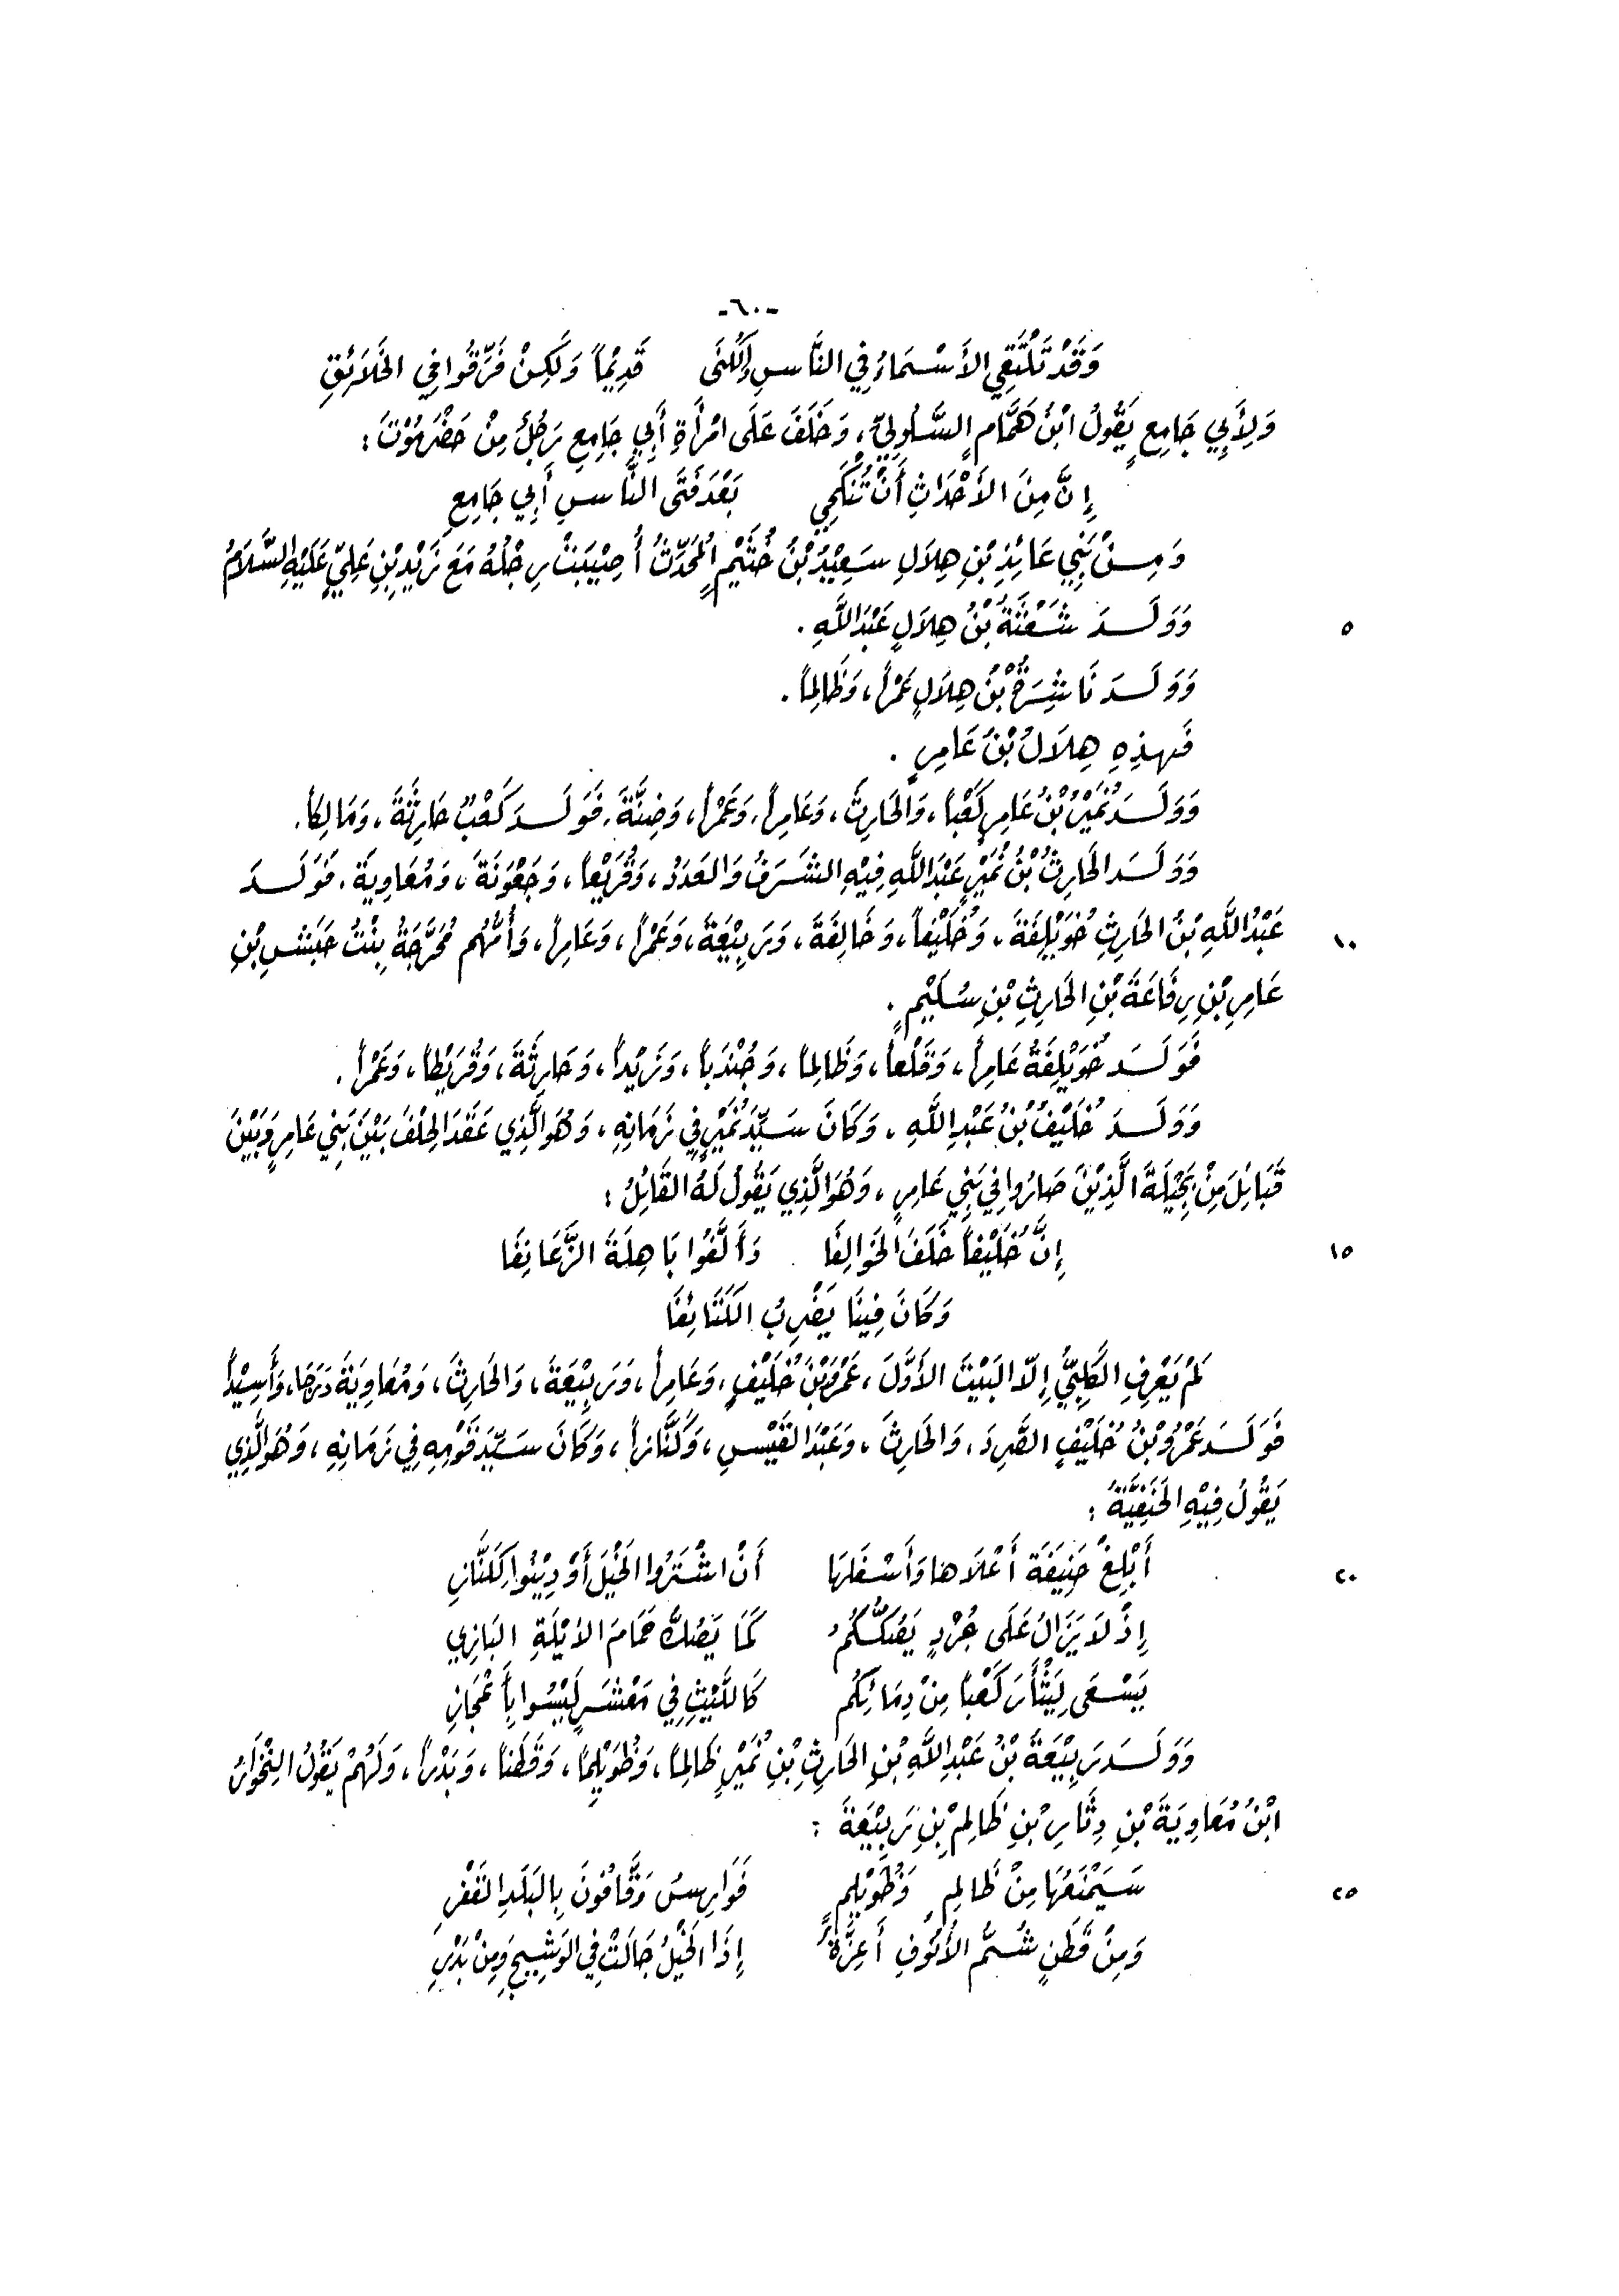 -٦٠-
وَقَدْ تَلْتَقِي الأَسْمَاءُ فِي النَّاسِ وَالكُنَى قَدِيْمَاً وَلَكِنْ فَرَّقُوا فِي الخَلَائِقِ
وَلِأَبِي جَامِعٍ يَقُولُ ابْنُ هَمَّامٍ السَّلُولِيِّ، وَخَلَفَ عَلَى امْرَأَةِ أَبِي جَامِعٍ رَجُلٌ مِنْ حَضْرَمَوْتَ:
إِنَّ مِنَ الأَحْدَاثِ أَنْ تُنْكَحِي بَعْدَ فَتَى النَّاسِ أَبِي جَامِعِ
وَمِنْ بَنِي عَائِذِ بْنِ هِلَالٍ سَعِيْدُ بْنُ خُثَيْمٍ المُحَدِّثُ أُصِيْبَتْ رِجْلُهُ مَعَ زَيْدِ بْنِ عَلِيٍّ عَلَيْهِ السَّلَامُ
٥ وَوَلَدَ شَعْثَةُ بْنُ هِلَالٍ عَبْدَ اللَّهِ.
وَوَلَدَ نَاشِرَةُ بْنُ هِلَالٍ عَمْرَاً، وَظَالِمَاً.
فَهذِهِ هِلَالُ بْنُ عَامِرٍ.
وَوَلَدَ نُمَيْرُ بْنُ عَامِرٍ كَعْبَاً، وَالحَارِثَ، وَعَامِرَاً، وَعَمْرَاً، وَضِنَّةَ، فَوَلَدَ كَعْبٌ حَارِثَةَ، وَمَالِكَاً.
وَوَلَدَ الحَارِثُ بْنُ نُمَيْرٍ عَبْدَ اللَّهِ فِيْهِ الشَّرَفُ وَالعَدَدُ، وَقُرَيْعَاً، وَجَعْوَنَةَ، وَمُعَاوِيَةَ. فَوَلَدَ
١٠ عَبْدُ اللَّهِ بْنُ الحَارِثِ خُوَيْلِفَةَ، وَخُلَيْفَاً، وَخَالِفَةَ، وَرَبِيْعَةَ، وَعَمْرَاً، وَعَامِرَاً، وَأُمُّهُم مُخَرَّجَةُ بِنْتُ حَبَشِ بْنِ
عَامِرِ بْنِ رِفَاعَةَ بْنِ الحَارِثِ بْنِ سُلَيْمٍ.
فَوَلَدَ خُوَيْلِفَةُ عَامِرَاً، وَقَلْعَاً، وَظَالِمَاً، وَجُنْدَبَاً، وَزَيْدَاً، وَحَارِثَةَ، وَقُرَيْطَاً، وَعَمْرَاً.
وَوَلَدَ خُلَيْفُ بْنُ عَبْدِ اللَّهِ، وَكَانَ سَيِّدَ نُمَيْرٍ فِي زَمَانِهِ، وَهُوَ الَّذِي عَقَدَ الحِلْفَ بَيْنَ بَنِي عَامِرٍ وَبَيْنَ
قَبَائِلَ مِنْ بَجِيْلَةَ الَّذِيْنَ صَارُوا فِي بَنِي عَامِرٍ، وَهُوَ الَّذِي يَقُولُ لَهُ القَائِلُ:
١٥ إِنَّ خُلَيْفَاً خَلَفَ الخَوَالِفَا وَأَلَّفُوا بَاهِلَةَ الزَّعَانِفَا
وَكَانَ فِينَا يَضْرِبُ الكَتَائِفَا
لَمْ يَعْرِفِ الكَلْبِيُّ إِلَّا البَيْتَ الأَوَّلَ، عَمْرَو بْنَ خُلَيْفٍ، وَعَامِرَاً، وَرَبِيْعَةَ، وَالحَارِثَ، وَمُعَاوِيَةَ دَرَجَا، وَأَسِيْدَاً
فَوَلَدَ عَمْرُو بْنُ خُلَيْفٍ الصَّرِدَ، وَالحَارِثَ، وَعَبْدَ القَيْسِ، وَكَنَّازَاً، وَكَانَ سَيِّدَ قَوْمِهِ فِي زَمَانِهِ، وَهُوَ الَّذِي
يَقُولُ فِيْهِ الحَنَفِيَّةُ:
٢٠ أَبْلِغْ حَنِيفَةَ أَعْلَاهَا وَأَسْفَلَهَا أَنْ اشْتَرُوا الخَيْلَ أَوْ دِيْنُوا لِكَنَّازِ
إِذْ لَا يَزَالُ عَلَى جُرْدٍ يَصُكُّكُمُ كَمَا يَصُكُّ حَمَامَ الأَيْكَةِ البَازِي
يَسْعَى لِيَثْأَرَ كَعْبَاً مِنْ دِمَائِكُم كَاللَّيْثِ فِي مَعْشَرٍ لَيْسُوا بِأَعْجَازِ
وَوَلَدَ رَبِيْعَةُ بْنُ عَبْدِ اللَّهِ بْنِ الحَارِثِ بْنِ نُمَيْرٍ ظَالِمَاً، وَظُوَيْلِمَاً، وَقَطَنَاً، وَبَدْرَاً، وَلَهُمْ يَقُولُ النِّخْوَارُ
ابْنُ مُعَاوِيَةَ بْنِ دِثَارِ بْنِ ظَالِمِ بْنِ رَبِيْعَةَ:
٢٥ سَيَمْنَعُهَا مِنْ ظَالِمٍ وَظُوَيْلِمٍ فَوَارِسُ وَقَّافُونَ بِالبَلَدِ القَفْرِ
وَمِنْ قَطَنٍ شُمُّ الأُنُوفِ أَعِزَّةٌ إِذَا الخَيْلُ جَالَتْ فِي الوَشِيجِ وَمِنْ بَدْرِ